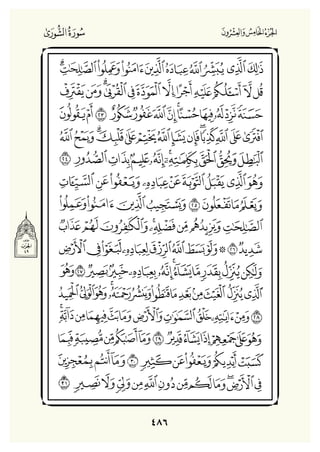 الجُزْءُ الخَامِسُ وَالعِشْرُونَ
سُورَةُ الشُّورَىٰ
ذَٰلِكَ ٱلَّذِى يُبَشِّرُ ٱللَّهُ عِبَادَهُ ٱلَّذِينَ ءَامَنُوا۟ وَعَمِلُوا۟ ٱلصَّـٰلِحَـٰتِ ۗ
قُل لَّآ أَسْـَٔلُكُمْ عَلَيْهِ أَجْرًا إِلَّا ٱلْمَوَدَّةَ فِى ٱلْقُرْبَىٰ ۗ وَمَن يَقْتَرِفْ
حَسَنَةً نَّزِدْ لَهُۥ فِيهَا حُسْنًا ۚ إِنَّ ٱللَّهَ غَفُورٌ شَكُورٌ ٢٣ أَمْ يَقُولُونَ
ٱفْتَرَىٰ عَلَى ٱللَّهِ كَذِبًا ۖ فَإِن يَشَإِ ٱللَّهُ يَخْتِمْ عَلَىٰ قَلْبِكَ ۗ وَيَمْحُ ٱللَّهُ
ٱلْبَـٰطِلَ وَيُحِقُّ ٱلْحَقَّ بِكَلِمَـٰتِهِۦٓ ۚ إِنَّهُۥ عَلِيمٌۢ بِذَاتِ ٱلصُّدُورِ ٢٤
وَهُوَ ٱلَّذِى يَقْبَلُ ٱلتَّوْبَةَ عَنْ عِبَادِهِۦ وَيَعْفُوا۟ عَنِ ٱلسَّيِّـَٔاتِ
وَيَعْلَمُ مَا تَفْعَلُونَ ٢٥ وَيَسْتَجِيبُ ٱلَّذِينَ ءَامَنُوا۟ وَعَمِلُوا۟
ٱلصَّـٰلِحَـٰتِ وَيَزِيدُهُم مِّن فَضْلِهِۦ ۚ وَٱلْكَـٰفِرُونَ لَهُمْ عَذَابٌ
شَدِيدٌ ٢٦ ۞ وَلَوْ بَسَطَ ٱللَّهُ ٱلرِّزْقَ لِعِبَادِهِۦ لَبَغَوْا۟ فِى ٱلْأَرْضِ
وَلَـٰكِن يُنَزِّلُ بِقَدَرٍ مَّا يَشَآءُ ۚ إِنَّهُۥ بِعِبَادِهِۦ خَبِيرٌۢ بَصِيرٌ ٢٧ وَهُوَ
ٱلَّذِى يُنَزِّلُ ٱلْغَيْثَ مِنۢ بَعْدِ مَا قَنَطُوا۟ وَيَنشُرُ رَحْمَتَهُۥ ۚ وَهُوَ ٱلْوَلِىُّ ٱلْحَمِيدُ
٢٨ وَمِنْ ءَايَـٰتِهِۦ خَلْقُ ٱلسَّمَـٰوَٰتِ وَٱلْأَرْضِ وَمَا بَثَّ فِيهِمَا مِن دَآبَّةٍ ۚ
وَهُوَ عَلَىٰ جَمْعِهِمْ إِذَا يَشَآءُ قَدِيرٌ ٢٩ وَمَآ أَصَـٰبَكُم مِّن مُّصِيبَةٍ فَبِمَا
كَسَبَتْ أَيْدِيكُمْ وَيَعْفُوا۟ عَن كَثِيرٍ ٣٠ وَمَآ أَنتُم بِمُعْجِزِينَ
فِى ٱلْأَرْضِ ۖ وَمَا لَكُم مِّن دُونِ ٱللَّهِ مِن وَلِىٍّ وَلَا نَصِيرٍ ٣١
الحزب
٤٩
٤٨٦